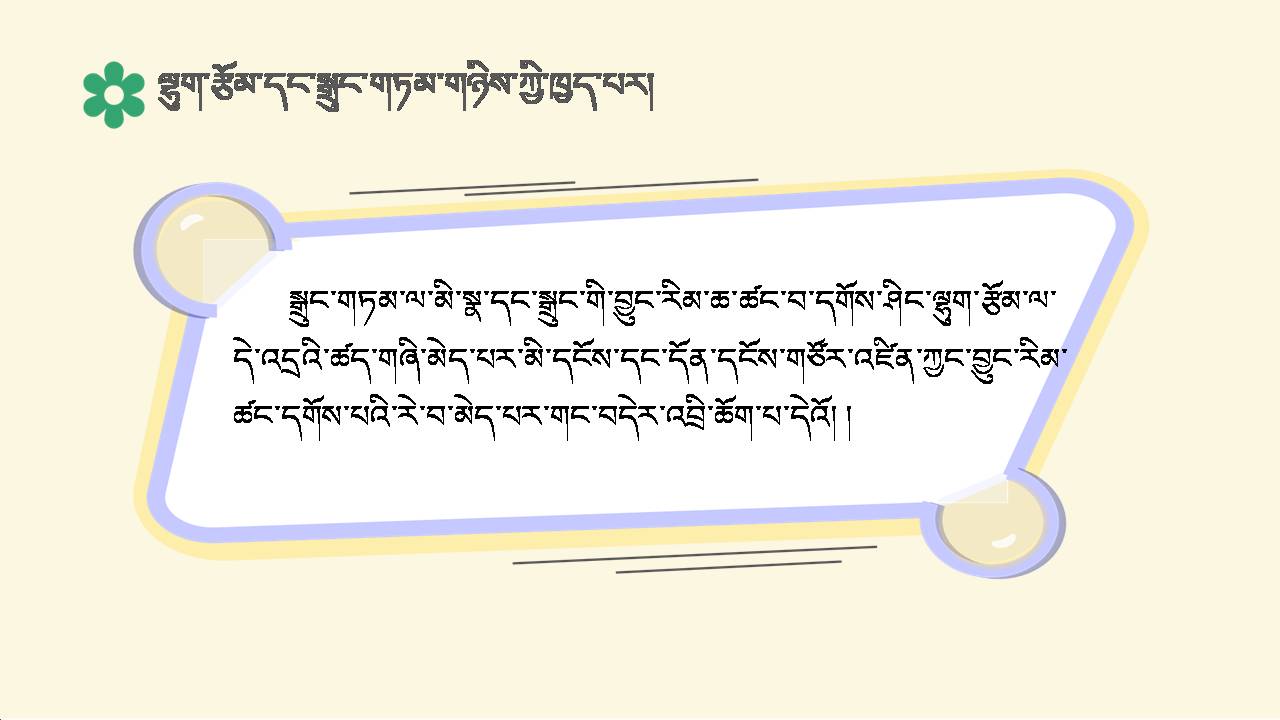 ལྷུག་རྩོམ་དང་སྒྲུང་གཏམ་གཉིས་ཀྱི་ཁྱད་པར།
སྒྲུང་གཏམ་ལ་མི་སྣ་དང་སྒྲུང་གི་བྱུང་རིམ་ཆ་ཚང་བ་དགོས་ཤིང་ལྷུག་རྩོམ་ལ་
དེ་འདྲའི་ཚད་གཞི་མེད་པར་མི་དངོས་དང་དོན་དངོས་གཙོར་འཛིན་ཀྱང་བྱུང་རིམ་
ཚང་དགོས་པའི་རེ་བ་མེད་པར་གང་བདེར་འབྲི་ཆོག་པ་དེའོ། །